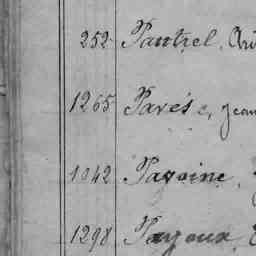 252 Pautrel, Ari
1265 Pavésc, Jean
1042 Pavoine, J
1298 Payoux, E